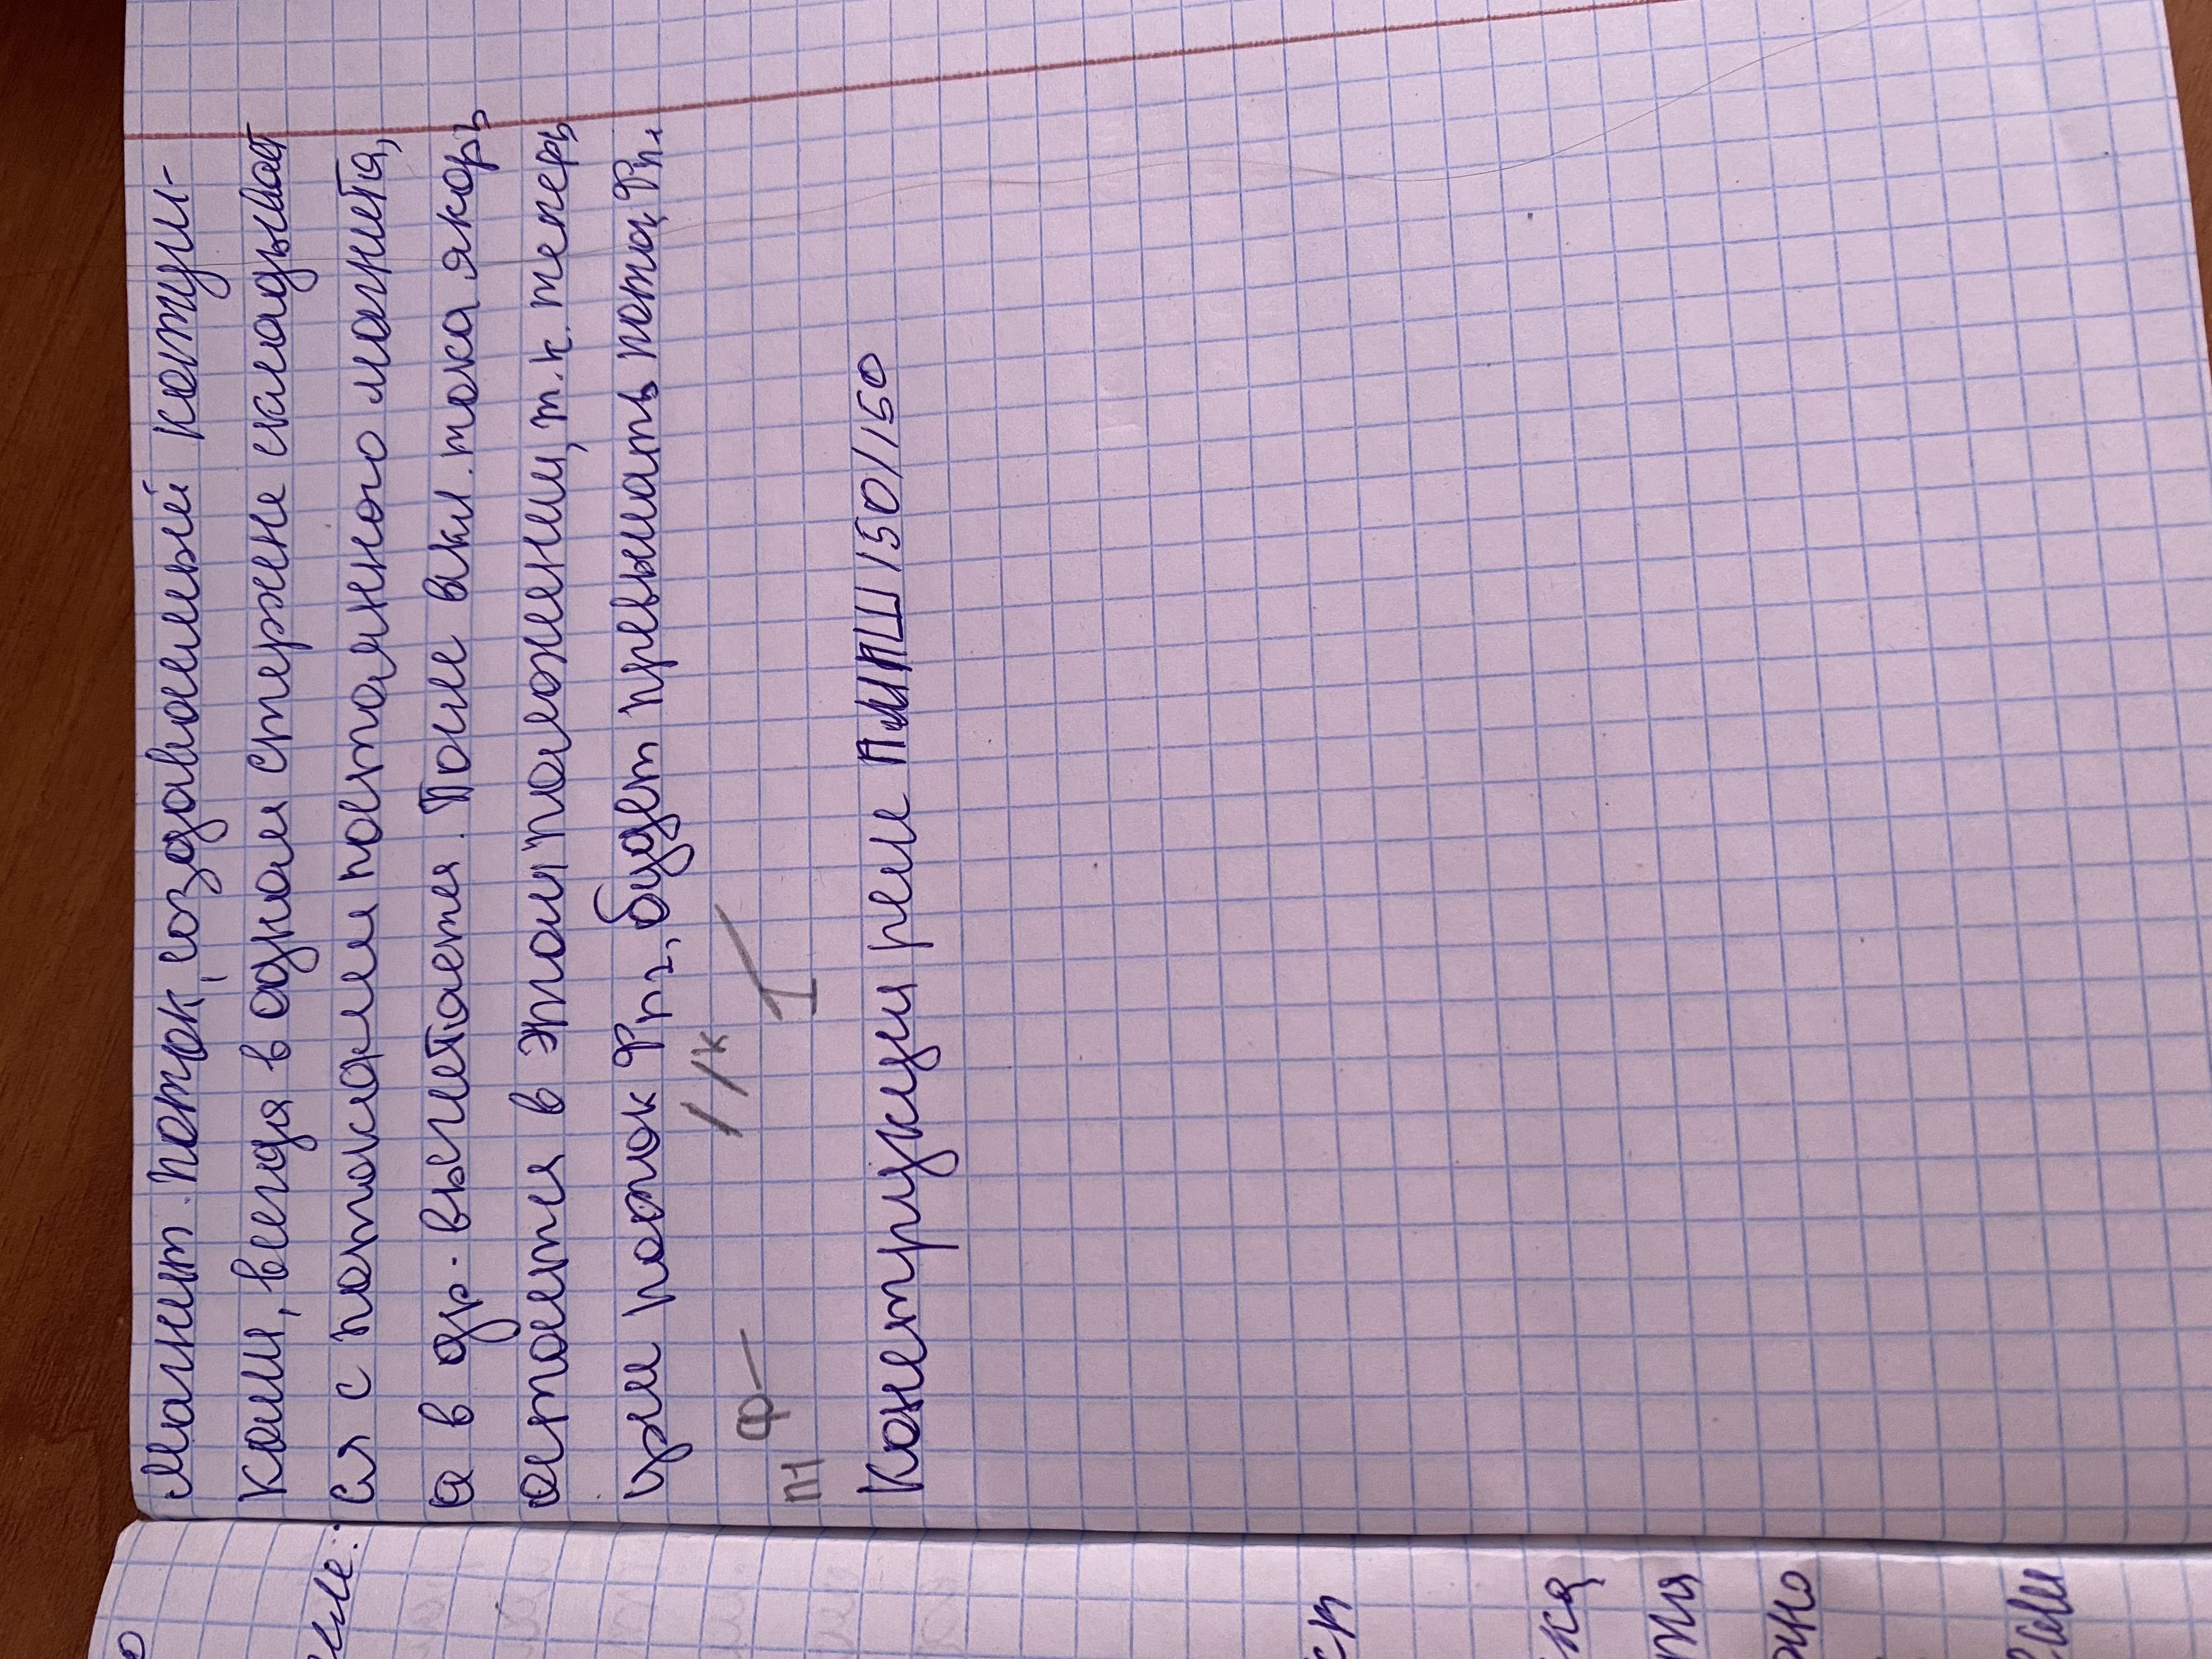 Магнит. поток, создаваемый катуш-
ками, всегда в одном стержне складывает
ся с потоками постоянного магнита,
а в др. вычитается. После выкл. тока якорь
остается в этом положении, т.к. теперь
уже поток Фп2, будет превышать поток Фп1
Конструкция реле ПМПШ 150/150